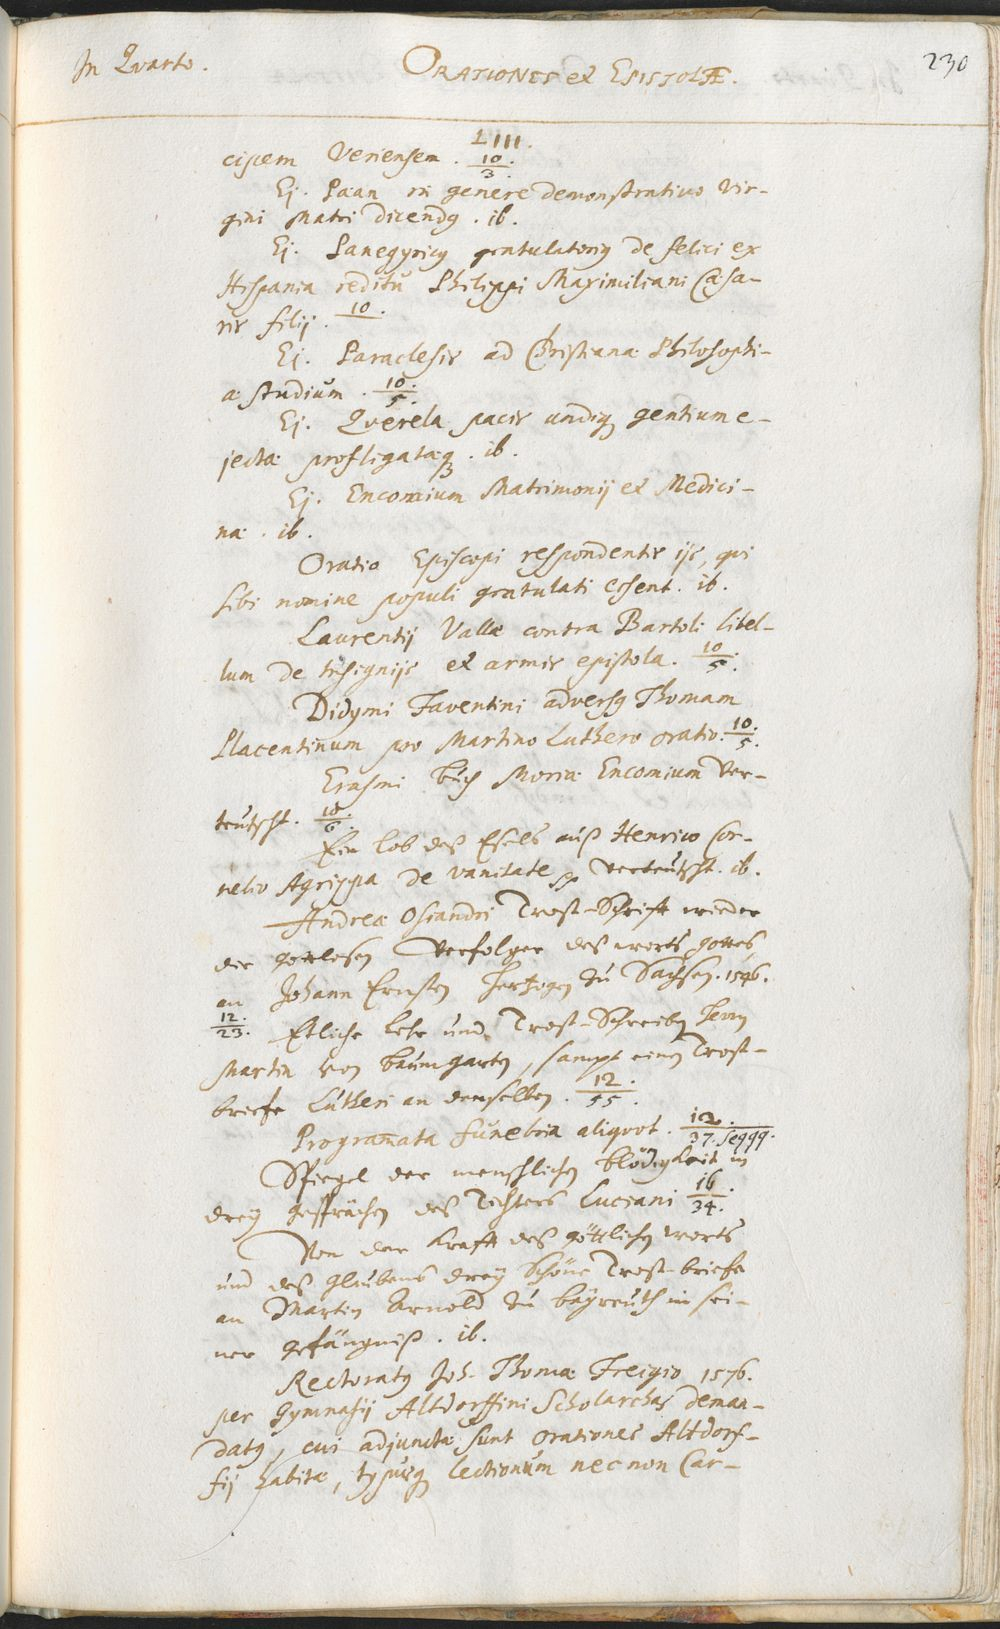 In Qvarto.
ORATIONES et EPISTOLÆ.
230
LIIII.
cipem Veriensem. 10/3.
Ej. Pæan in genere demonstrativo Vir-
gini Matri dicendq. ib.
Ej. Panegyricq gratulatoriq de felici ex
Hispania reditu Philippi Maximiliani Cæsa-
ris filij. 10.
Ej. Paraclesis ad Christianæ Philosophi-
æ studium. 10/5.
Ej. Qverela pacis undiq gentium e-
jectæ profligatæq. ib.
Ej. Encomium Matrimonij et Medici-
næ. ib.
Oratio Episcopi respondentis ijs, qvi
sibi nomine populi gratulati essent. ib.
Laurentij Vallæ contra Bartoli libel-
lum de insignijs et armis epistola. 10/5.
Didymi Faventini adversq Thomam
Placentinum pro Martino Luthero oratio. 10/5.
Erasmi buch Moriæ Encomium Ver-
teutscht. 10/6.
Ein lob deß Esels auß Henrico Cor-
nelio Agrippa de vanitate verteutscht. ib.
Andreæ Osiandri Trost-Schrifft wieder
die gottlosen Verfolger deß worts gottes
an Johann Ernsten Hertzogen zu Sachsen. 1546.
12/23. Etliche lehr und Trost-Schreiben Herrn
Martin von Baumgarten, sampt einen Trost-
briefe Lutheri an denselben. 12/55.
Programata funebria aliqvot. 12/37. seqqq.
Spiegel der menschlichen blödigkeit in
drey gesprächen deß Tichters Luciani 16/34.
Von der krafft deß göttlichen worts
und deß glaubens drey schöne Trost-briefe
an Martin Arnold zu bayreuth in sei-
ner gefängniß. ib.
Rectoratq Joh. Thomæ Freigio 1576.
per Gymnasij Altdorffini Scholarchas deman-
datq, cui adjunctæ sunt orationes Altdorf-
fij habitæ, typusq lectionum necnon Car-